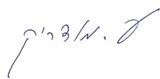 ע. מודריק